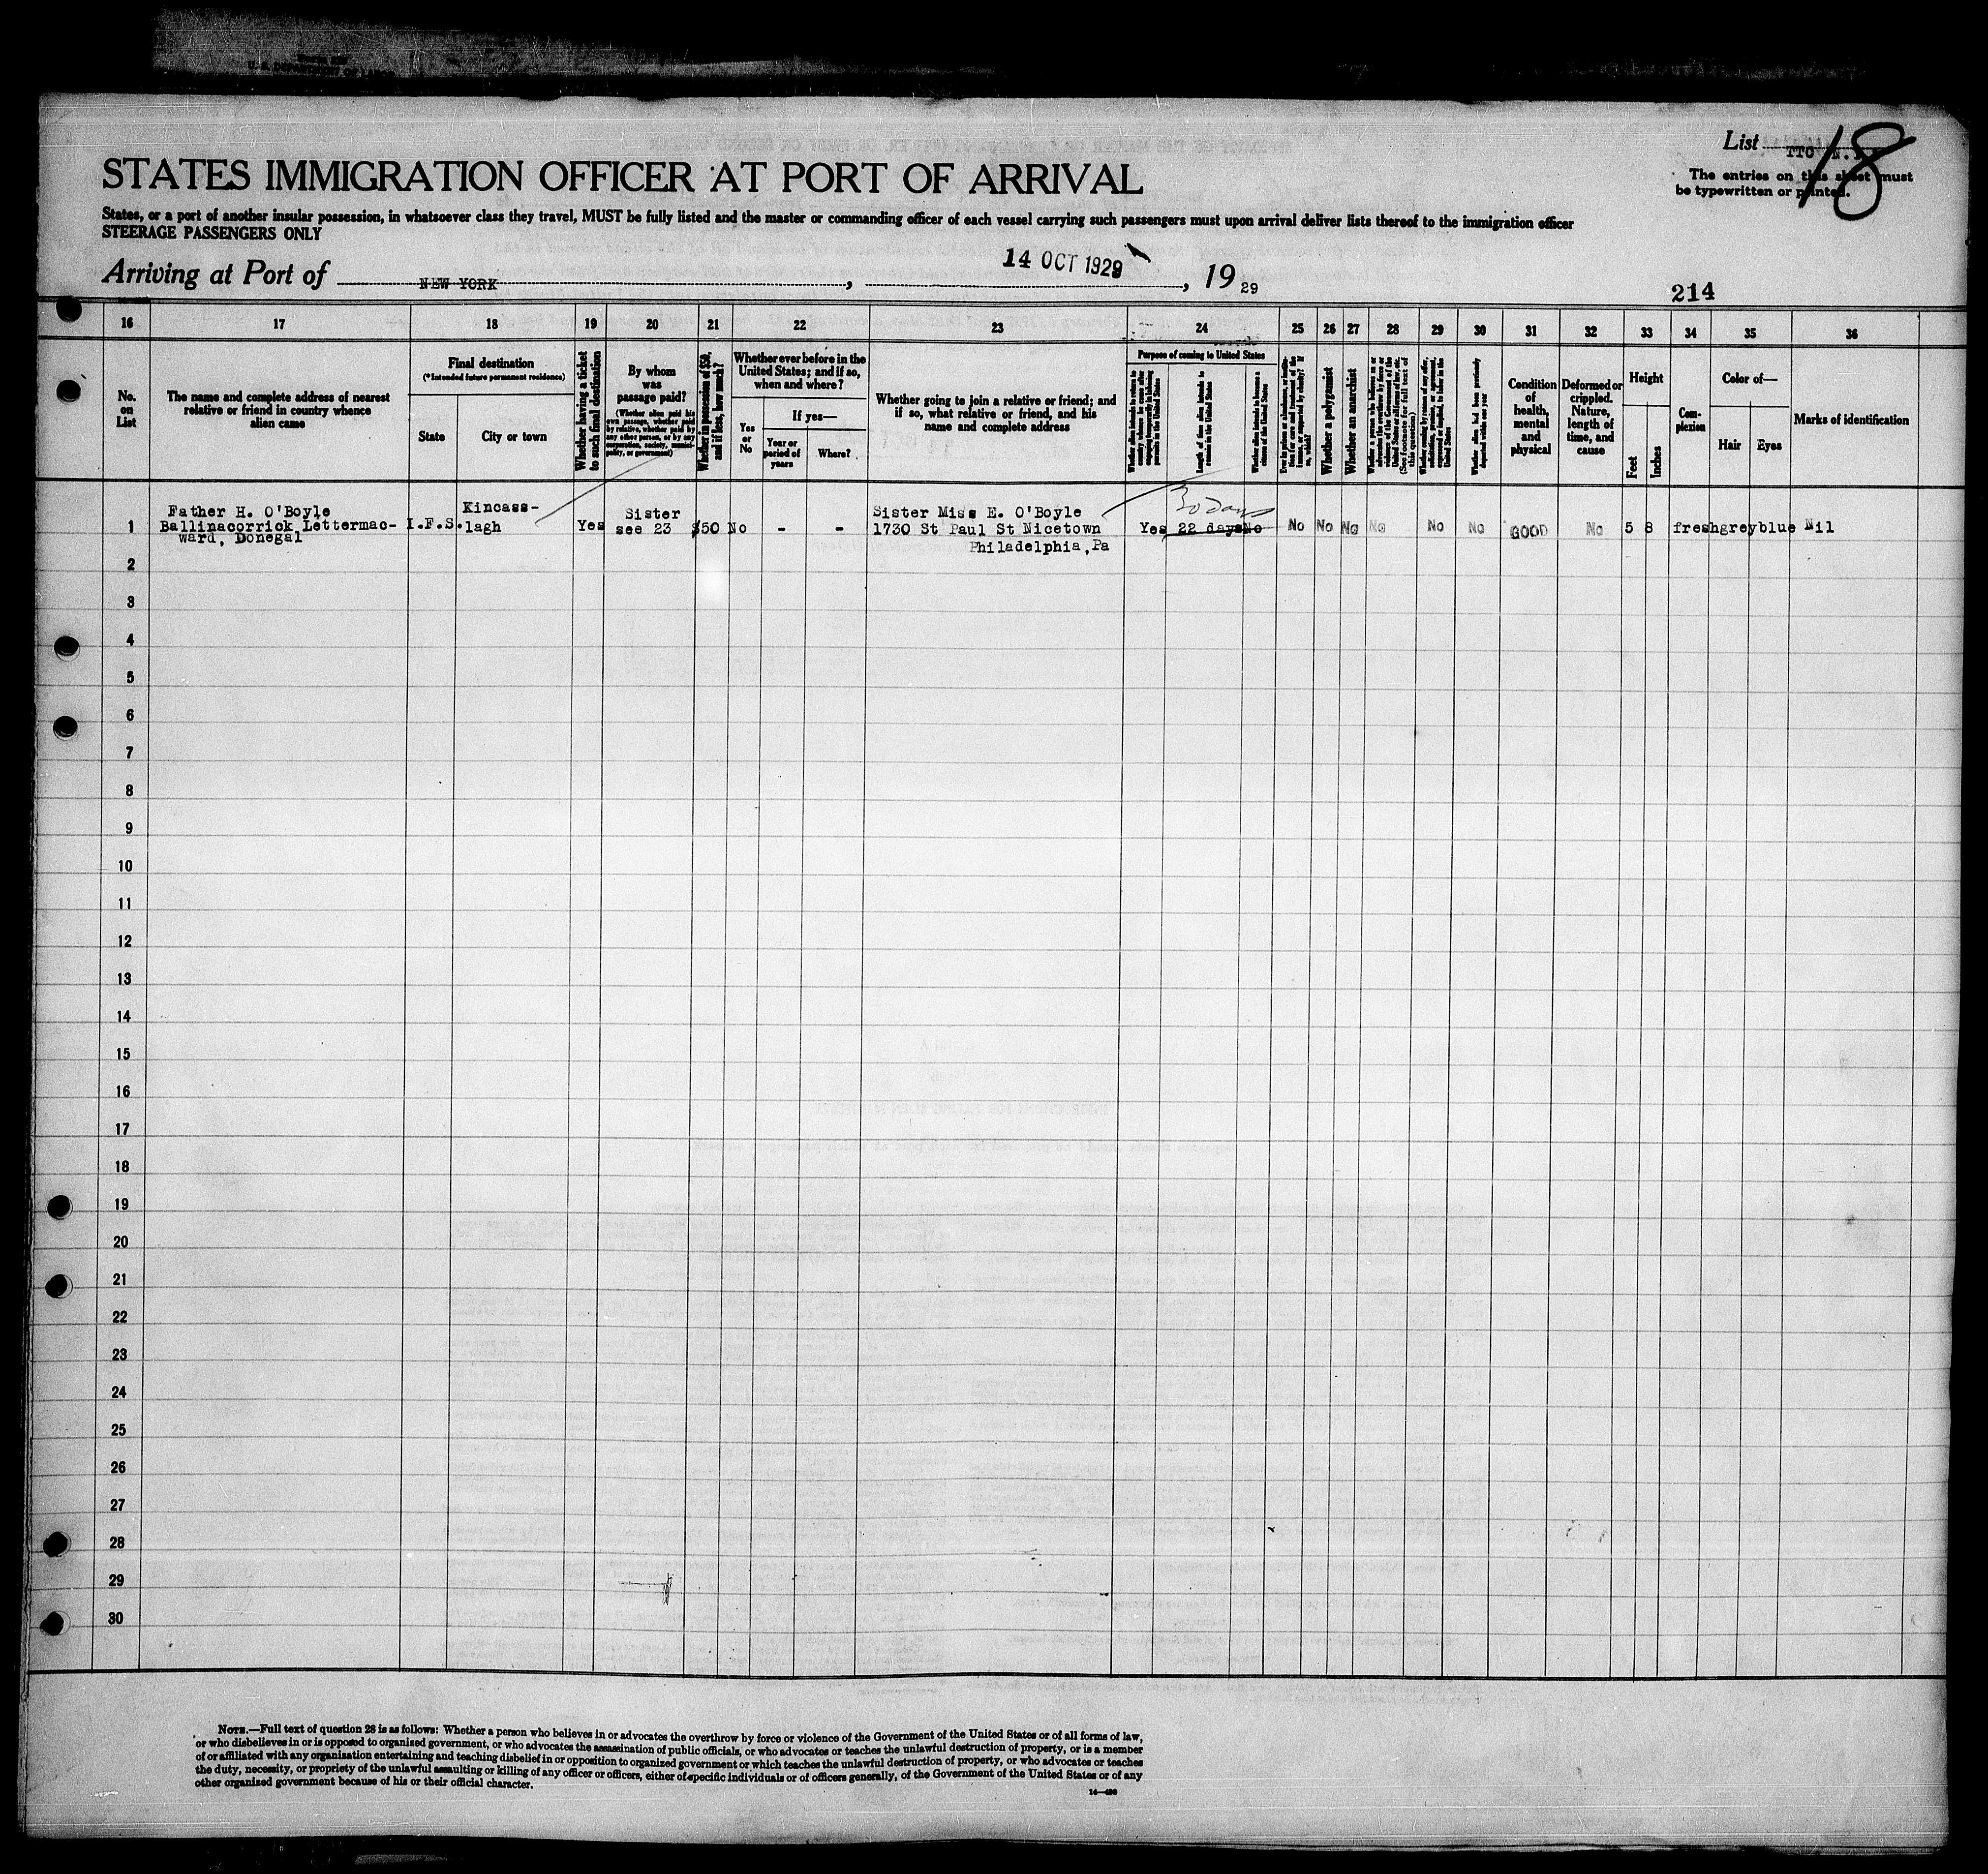 List TTO
18
STATES IMMIGRATION OFFICER AT PORT OF ARRIVAL
The entries on this sheet must
be typewritten or printed.
States, or a port of another insular possession, in whatsoever class they travel, MUST be fully listed and the master or commanding officer of each vessel carrying such passengers must upon arrival deliver lists thereof to the immigration officer
STEERAGE PASSENGERS ONLY
Arriving at Port of NEW YORK, 14 OCT 1929, 19 29
214
16 17 18 19 20 21 22 23 24 25 26 27 28 29 30 31 32 33 34 35 36
No.
on
List
The name and complete address of nearest
relative or friend in country whence
alien came
Final destination
(*Intended future permanent residence)
State
City or town
Whether having a ticket
to such final destination
By whom
was
passage paid?
(Whether alien paid his
own passage, whether paid
by relative, whether paid by
any other person, or by any
corporation, society, munici-
pality, or government)
Whether in possession of $50,
and if less, how much?
Whether ever before in the
United States; and if so,
when and where?
Yes
or
No
If yes—
Year or
period of
years
Where?
Whether going to join a relative or friend; and
if so, what relative or friend, and his
name and complete address
Purpose of coming to United States
Length of time alien intends to
remain in the United States
Whether alien intends to become a
citizen of the United States
Whether a polygamist
Whether an anarchist
Condition
of
health,
mental
and
physical
Deformed or
crippled.
Nature,
length of
time, and
cause
Height
Feet
Inches
Com-
plexion
Color of—
Hair
Eyes
Marks of identification
30 days
1 Father H. O'Boyle
Ballinacorrick Lettermac-
ward, Donegal
I.F.S.
Kincass-
lagh
Yes
Sister
see 23
$50 No - -
Sister Miss E. O'Boyle
1730 St Paul St Nicetown
Philadelphia, Pa
Yes 22 days No No No No No No No GOOD No 5 8 fresh grey blue Nil
2
3
4
5
6
7
8
9
10
11
12
13
14
15
16
17
18
19
20
21
22
23
24
25
26
27
28
29
30
NOTE.—Full text of question 28 is as follows: Whether a person who believes in or advocates the overthrow by force or violence of the Government of the United States or of all forms of law,
or who disbelieves in or is opposed to organized government, or who advocates the assassination of public officials, or who advocates or teaches the unlawful destruction of property, or is a member
of or affiliated with any organization entertaining and teaching disbelief in or opposition to organized government or which teaches the unlawful destruction of property, or who advocates or teaches
the duty, necessity, or propriety of the unlawful assaulting or killing of any officer or officers, either of specific individuals or of officers generally, of the Government of the United States or of any
other organized government because of his or their official character.